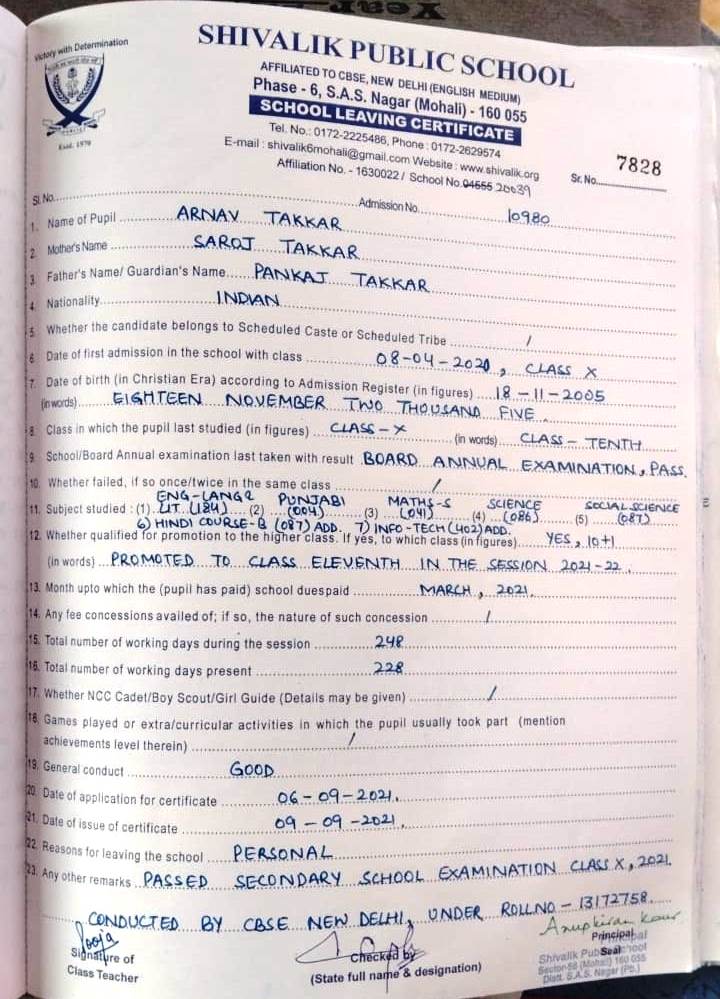 Victory with Determination
Estd. 1970
SHIVALIK PUBLIC SCHOOL
AFFILIATED TO CBSE, NEW DELHI (ENGLISH MEDIUM)
Phase - 6, S.A.S. Nagar (Mohali) - 160 055
SCHOOL LEAVING CERTIFICATE
Tel. No.: 0172-2225486, Phone : 0172-2629574
E-mail : shivalik6mohali@gmail.com Website : www.shivalik.org
Affiliation No. - 1630022 / School No. 04555 20639
Sr. No. 7828
Sl. No. Admission No. 10980
1. Name of Pupil ARNAV TAKKAR
2. Mother's Name SAROJ TAKKAR
3. Father's Name/ Guardian's Name PANKAJ TAKKAR
4. Nationality INDIAN
5. Whether the candidate belongs to Scheduled Caste or Scheduled Tribe /
6. Date of first admission in the school with class 08-04-2020, CLASS X
7. Date of birth (in Christian Era) according to Admission Register (in figures) 18-11-2005
(in words) EIGHTEEN NOVEMBER TWO THOUSAND FIVE
8. Class in which the pupil last studied (in figures) CLASS-X (in words) CLASS-TENTH
9. School/Board Annual examination last taken with result BOARD ANNUAL EXAMINATION, PASS.
10. Whether failed, if so once/twice in the same class /
ENG-LANG & PUNJABI MATHS-S SCIENCE SOCIAL SCIENCE
11. Subject studied : (1) LIT. (184) (2) (004) (3) (041) (4) (086) (5) (087)
6) HINDI COURSE-B (087) ADD. 7) INFO-TECH (402) ADD.
12. Whether qualified for promotion to the higher class. If yes, to which class (in figures) YES, 10+1
(in words) PROMOTED TO CLASS ELEVENTH IN THE SESSION 2021-22.
13. Month upto which the (pupil has paid) school duespaid MARCH, 2021.
14. Any fee concessions availed of; if so, the nature of such concession /
15. Total number of working days during the session 248
16. Total number of working days present 228
17. Whether NCC Cadet/Boy Scout/Girl Guide (Details may be given) /
18. Games played or extra/curricular activities in which the pupil usually took part (mention
achievements level therein) /
19. General conduct GOOD
20. Date of application for certificate 06-09-2021.
21. Date of issue of certificate 09-09-2021.
22. Reasons for leaving the school PERSONAL
23. Any other remarks PASSED SECONDARY SCHOOL EXAMINATION CLASS X, 2021.
CONDUCTED BY CBSE NEW DELHI, UNDER ROLLNO-13172758.
Pooja
Signature of
Class Teacher
Checked by
(State full name & designation)
Anupkiran Kaur
Principal
Seal
Principal
Shivalik Public School
Sector-56 (Mohali) 160 055
Distt. S.A.S. Nagar (Pb.)